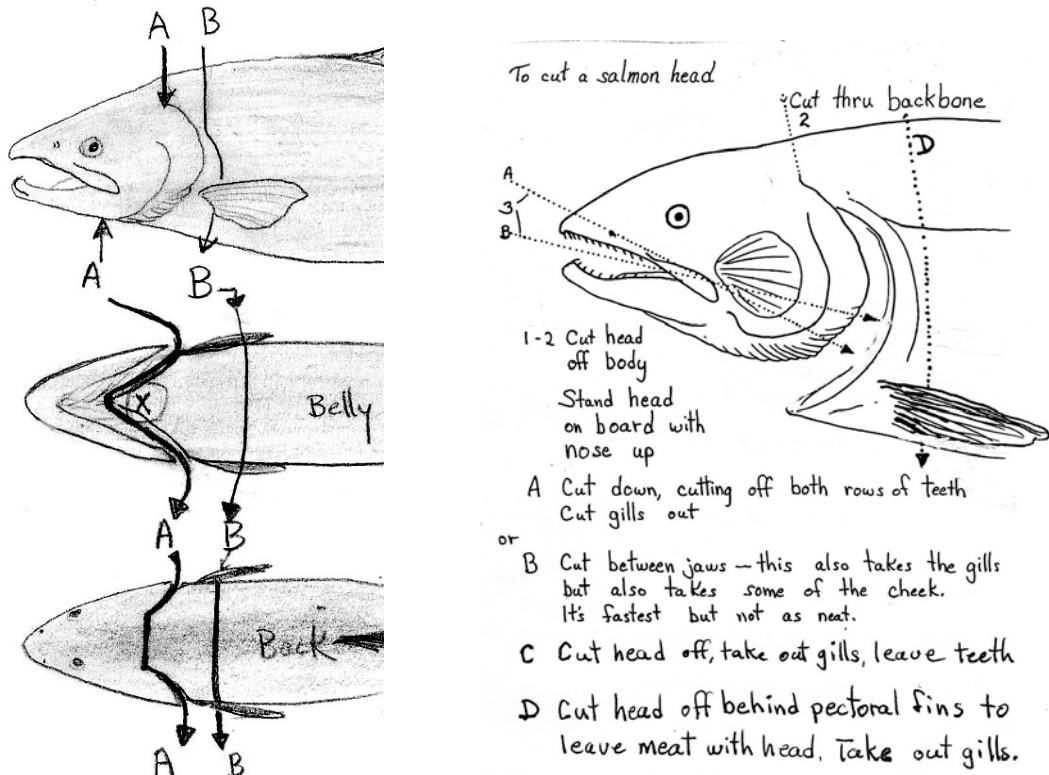 A
B
A
B
X
Belly
A
B
Back
A
B
To cut a salmon head
Cut thru backbone
2
D
A
3
B
1-2 Cut head
off body
Stand head
on board with
nose up
A Cut down, cutting off both rows of teeth
Cut gills out
or
B Cut between jaws – this also takes the gills
but also takes some of the cheek.
It's fastest but not as neat.
C Cut head off, take out gills, leave teeth
D Cut head off behind pectoral fins to
leave meat with head. Take out gills.